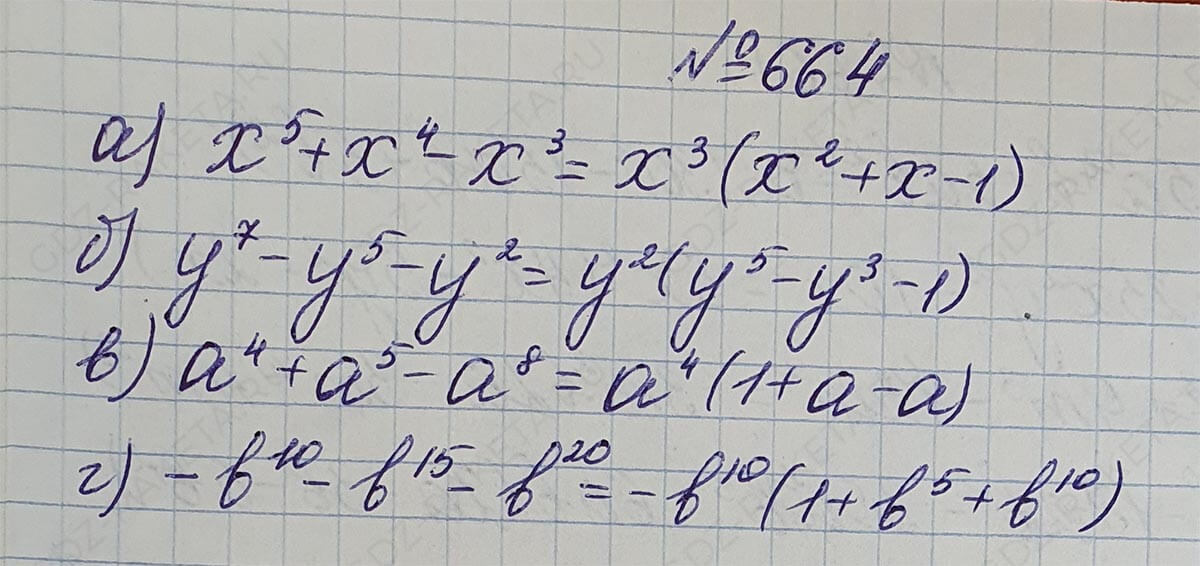 №664
а) x⁵+x⁴-x³=x³(x²+x-1)
б) y⁷-y⁵-y²=y²(y⁵-y³-1)
в) a⁴+a⁵-a⁸=a⁴(1+a-a)
г) -b¹⁰-b¹⁵-b²⁰=-b¹⁰(1+b⁵+b¹⁰)